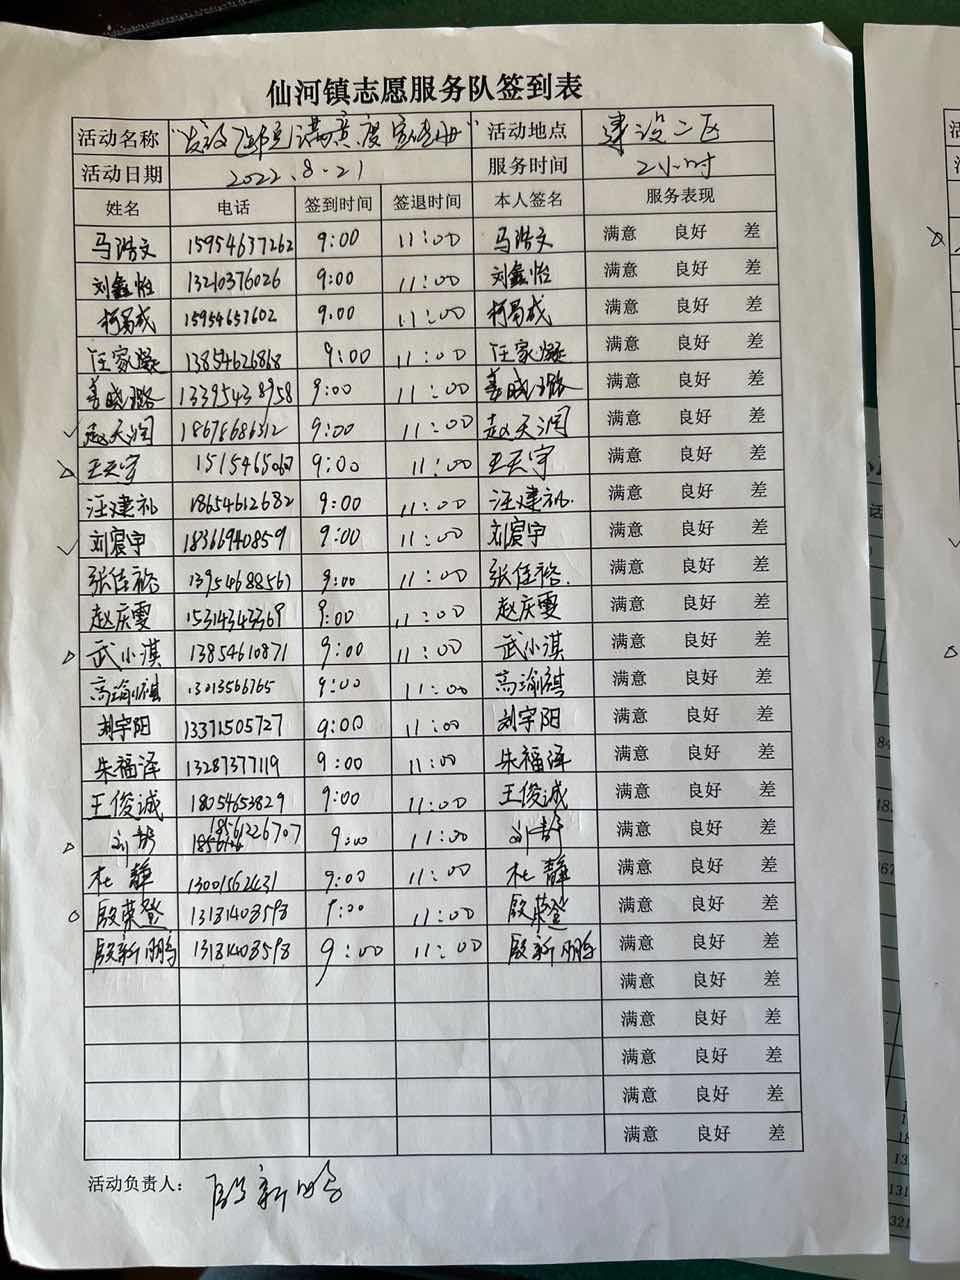 仙河镇志愿服务队签到表
活动名称 "发放 满意度宣传册" 活动地点 建设二区
活动日期 2022.8.21 服务时间 2小时
姓名 电话 签到时间 签退时间 本人签名 服务表现
马浩文 15954637262 9:00 11:00 马浩文 满意 良好 差
刘鑫怡 13210376026 9:00 11:00 刘鑫怡 满意 良好 差
柯昜成 15954657602 9:00 11:00 柯昜成 满意 良好 差
任家凝 13854626868 9:00 11:00 任家凝 满意 良好 差
姜晓璐 13395438958 9:00 11:00 姜晓璐 满意 良好 差
赵天润 18678686312 9:00 11:00 赵天润 满意 良好 差
王天宇 9:00 11:00 王天宇 满意 良好 差
汪建礼 18654612682 9:00 11:00 汪建礼. 满意 良好 差
刘寰宇 18366940859 9:00 11:00 刘寰宇 满意 良好 差
张佳裕 13954688561 9:00 11:00 张佳裕. 满意 良好 差
赵庆雯 15314343369 9:00 11:00 赵庆雯 满意 良好 差
武小淇 13854610871 9:00 11:00 武小淇 满意 良好 差
高瑜祺 13013566765 9:00 11:00 高瑜祺 满意 良好 差
刘宇阳 13371505727 9:00 11:00 刘宇阳 满意 良好 差
朱福泽 13287377119 9:00 11:00 朱福泽 满意 良好 差
王俊诚 18054653829 9:00 11:00 王俊诚 满意 良好 差
刘静 18561226707 9:00 11:00 刘静 满意 良好 差
杜静 13001562431 9:00 11:00 杜静 满意 良好 差
殷荣登 13181408598 9:00 11:00 殷荣登 满意 良好 差
殷新鹏 13181408598 9:00 11:00 殷新鹏 满意 良好 差
满意 良好 差
满意 良好 差
满意 良好 差
满意 良好 差
满意 良好 差
活动负责人： 殷新鹏